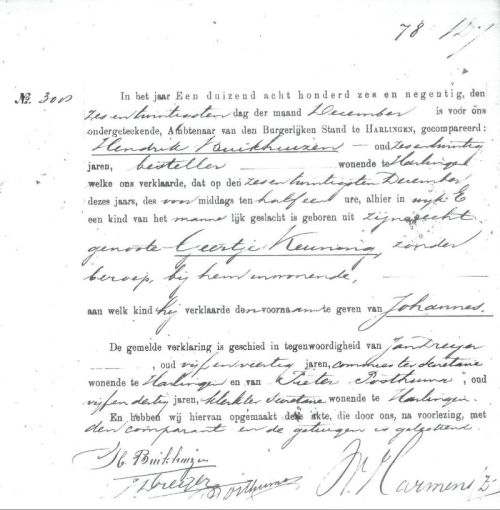 78
No. 300
In het jaar Een duizend acht honderd zes en negentig, den
zes en twintigsten dag der maand December is voor ons
ondergeteekende, Ambtenaar van den Burgerlijken Stand te HARLINGEN, gecompareerd:
Hendrik Buikhuizen oud zes en twintig
jaren, besteller wonende te Harlingen
welke ons verklaarde, dat op den zes en twintigsten December
dezes jaars, des voor middags ten half een ure, alhier in wijk E
een kind van het manne lijk geslacht is geboren uit zijne echt
genoote Geertje Keuning, zonder
beroep, bij hem inwonende,
aan welk kind hij verklaarde den voornaam te geven van Johannes.
De gemelde verklaring is geschied in tegenwoordigheid van Jan Dreijer
, oud vijf en veertig jaren, commies ter secretarie
wonende te Harlingen en van Pieter Posthuma, oud
vijf en dertig jaren, klerk ter secretarie wonende te Harlingen.
En hebben wij hiervan opgemaakt deze akte, die door ons, na voorlezing, met
den comparant en de getuigen is geteekend.
H. Buikhuizen
J Dreijer
Posthuma
Harmens